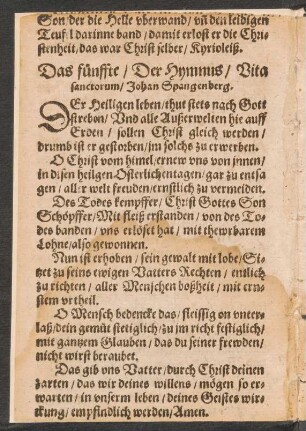 Son der die Helle vberwand/ vñ den leidigen
Teufl darinne band/ damit erlost er die Chri-
stenheit/ das war Christ selber/ Kyrioleiß.
Das fünffte/ Der Hymnus/ Vita
sanctorum/ Johan Spangenberg.
DEr Heiligen leben/ thut stets nach Gott
streben/ Vnd alle Außerwelten hie auff
Erden/ sollen Christ gleich werden/
drumb ist er gestorben/ jm solchs zu erwerben.
O Christ vom himel/ ernew vns von jnnen/
in disen heilgen Osterlichentagen/ gar zu entsa-
gen/ aller welt freuden/ ernstlich zu vermeiden.
Des Todes kempffer/ Christ Gottes Son
Schöpffer/ Mit fleiß erstanden/ von des To-
des banden/ vns erlöset hat/ mit thewrbarem
Lohne/ also gewonnen.
Nun ist erhoben/ sein gewalt mit lobe/ Si-
tzet zu seins ewigen Vatters Rechten/ entlich
zu richten/ aller Menschen boßheit/ mit ern-
stem vrtheil.
O Mensch bedencke das/ fleissig on vnter-
laß/ dein gemüt stetiglich/ zu jm richt festiglich/
mit gantzem Glauben/ das du seiner frewden/
nicht wirst beraubet.
Das gib vns Vatter/ durch Christ deinen
zarten/ das wir deines willens/ mögen so er-
warten/ in vnserm leben/ deines Geistes wir-
ckung/ empfindlich werden/ Amen.